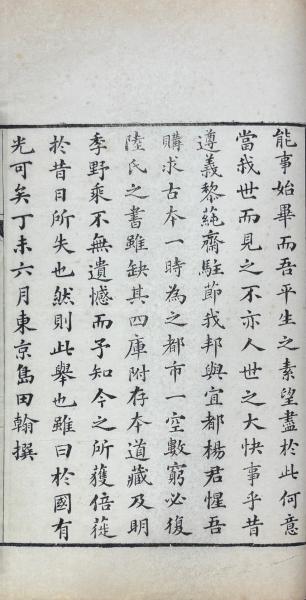 能事始畢而吾平生之素望盡於此何意
當我世而見之不亦人世之大快事乎昔
遵義黎蒓齋駐節我邦與宜都楊君惺吾
購求古本一時為之都市一空數窮必復
陸氏之書雖缺其四庫附存本道藏及明
季野乘不無遺憾而予知今之所獲倍蓰
於昔日所失也然則此舉也雖曰於國有
光可矣丁未六月東京島田翰撰